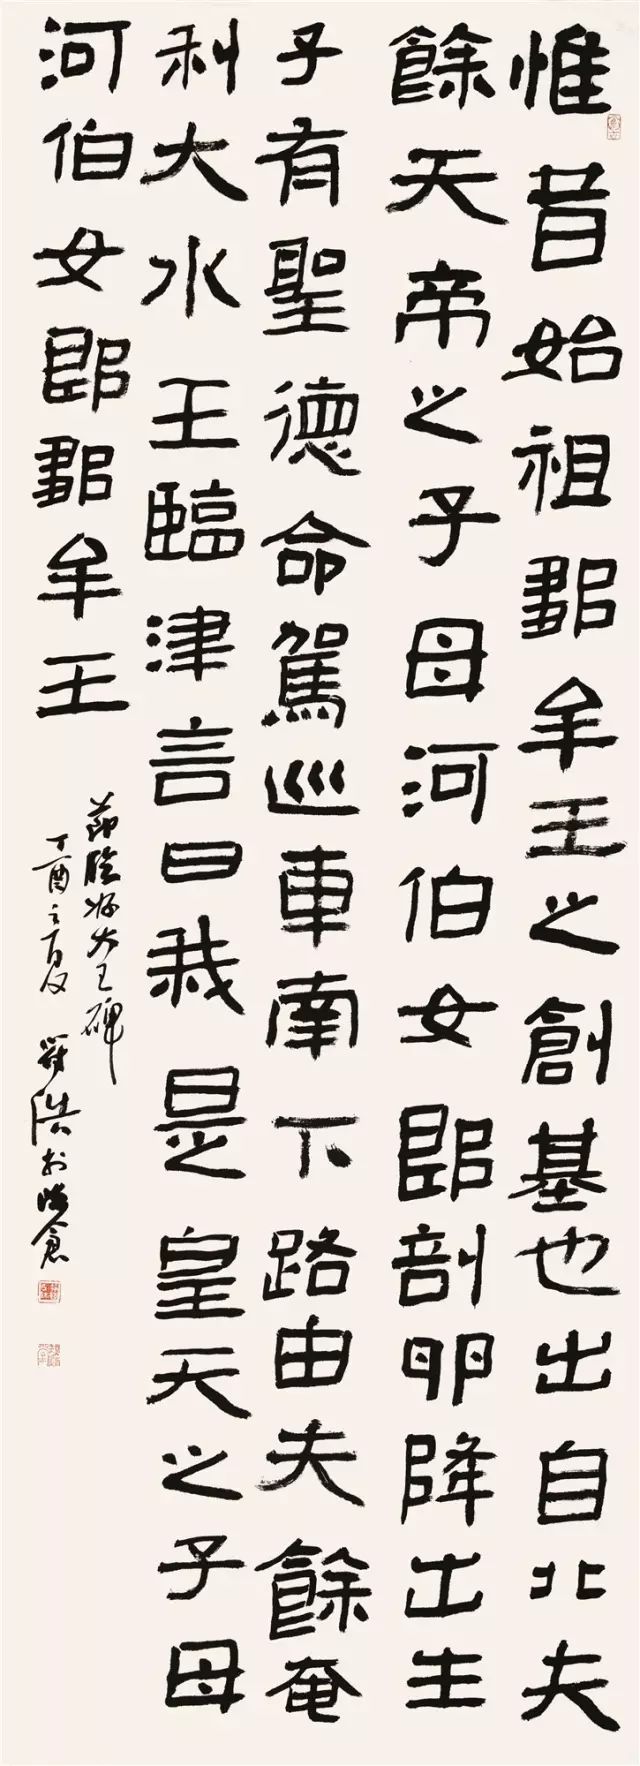 惟昔始祖鄒牟王之創基也出自北夫
餘天帝之子母河伯女郎剖卵降出生
子有聖德命駕巡車南下路由夫餘奄
利大水王臨津言曰我是皇天之子母
河伯女郎鄒牟王
節臨好大王碑
丁酉之夏